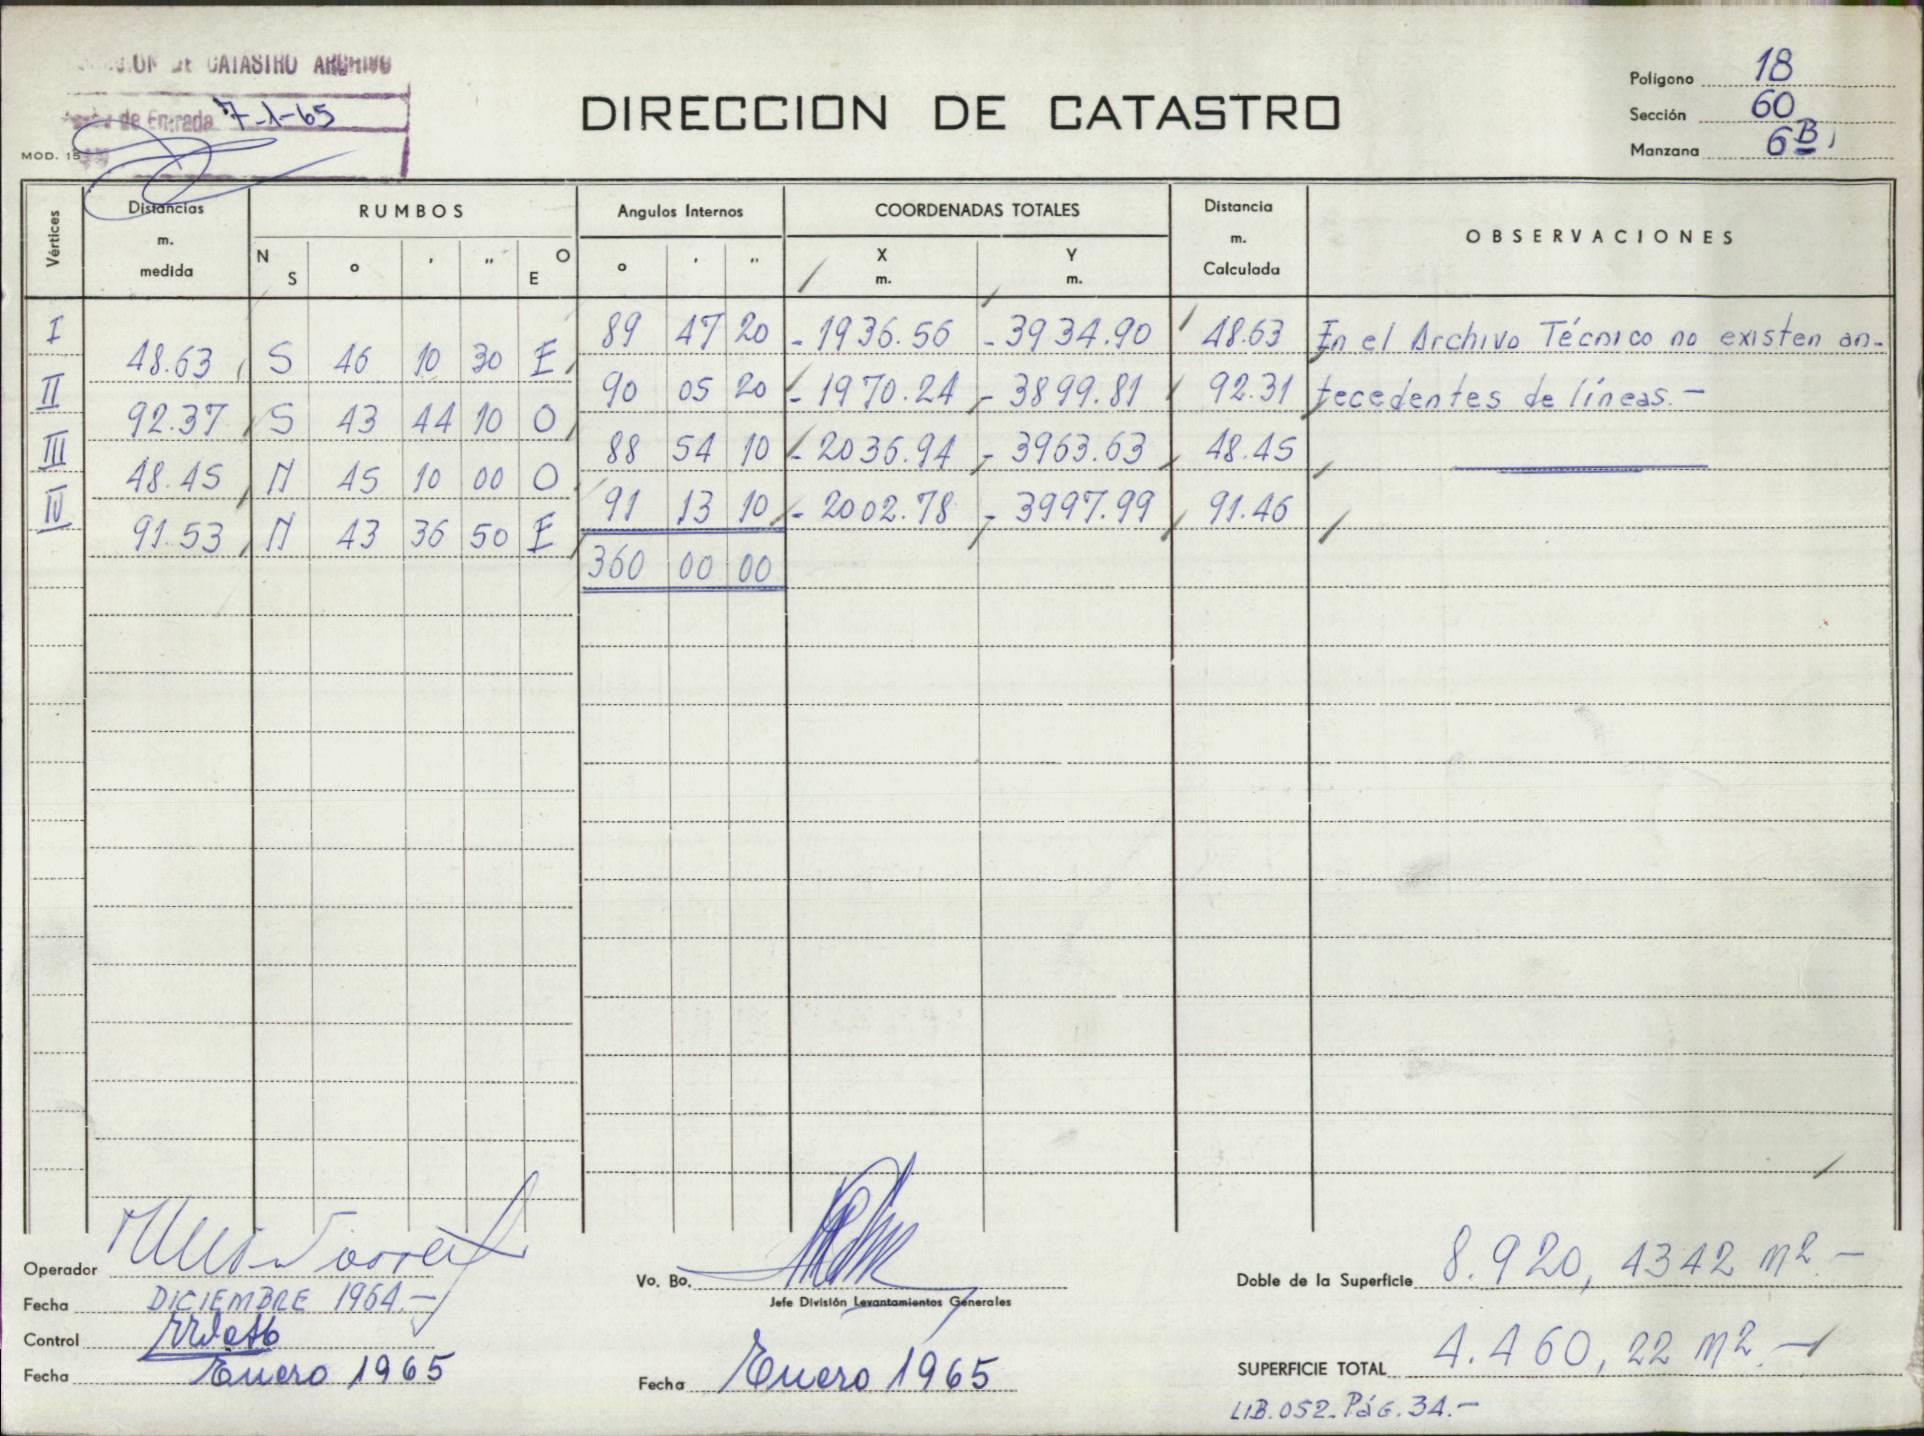 DE CATASTRO ARCHIVO
de Entrada 7-1-65
MOD. 15
DIRECCION DE CATASTRO
Polígono 18
Sección 60
Manzana 6B
Vértices
Distancias
m.
medida
RUMBOS
N S ° ' " O E
Angulos Internos
° ' "
COORDENADAS TOTALES
X
m.
Y
m.
Distancia
m.
Calculada
OBSERVACIONES
I 89 47 20 -1936.56 -3934.90 48.63 En el Archivo Técnico no existen an-
48.63 S 46 10 30 E
II 90 05 20 -1970.24 -3899.81 92.31 tecedentes de líneas.-
92.37 S 43 44 10 O
III 88 54 10 -2036.94 -3963.63 48.45
48.45 N 45 10 00 O
IV 91 13 10 -2002.78 -3997.99 91.46
91.53 N 43 36 50 E
360 00 00
Operador
Fecha DICIEMBRE 1964.-
Control
Fecha Enero 1965
Vo. Bo.
Jefe División Levantamientos Generales
Fecha Enero 1965
Doble de la Superficie 8.920,4342 m2.-
SUPERFICIE TOTAL 4.460,22 m2.-
LIB.052-Pág.34.-